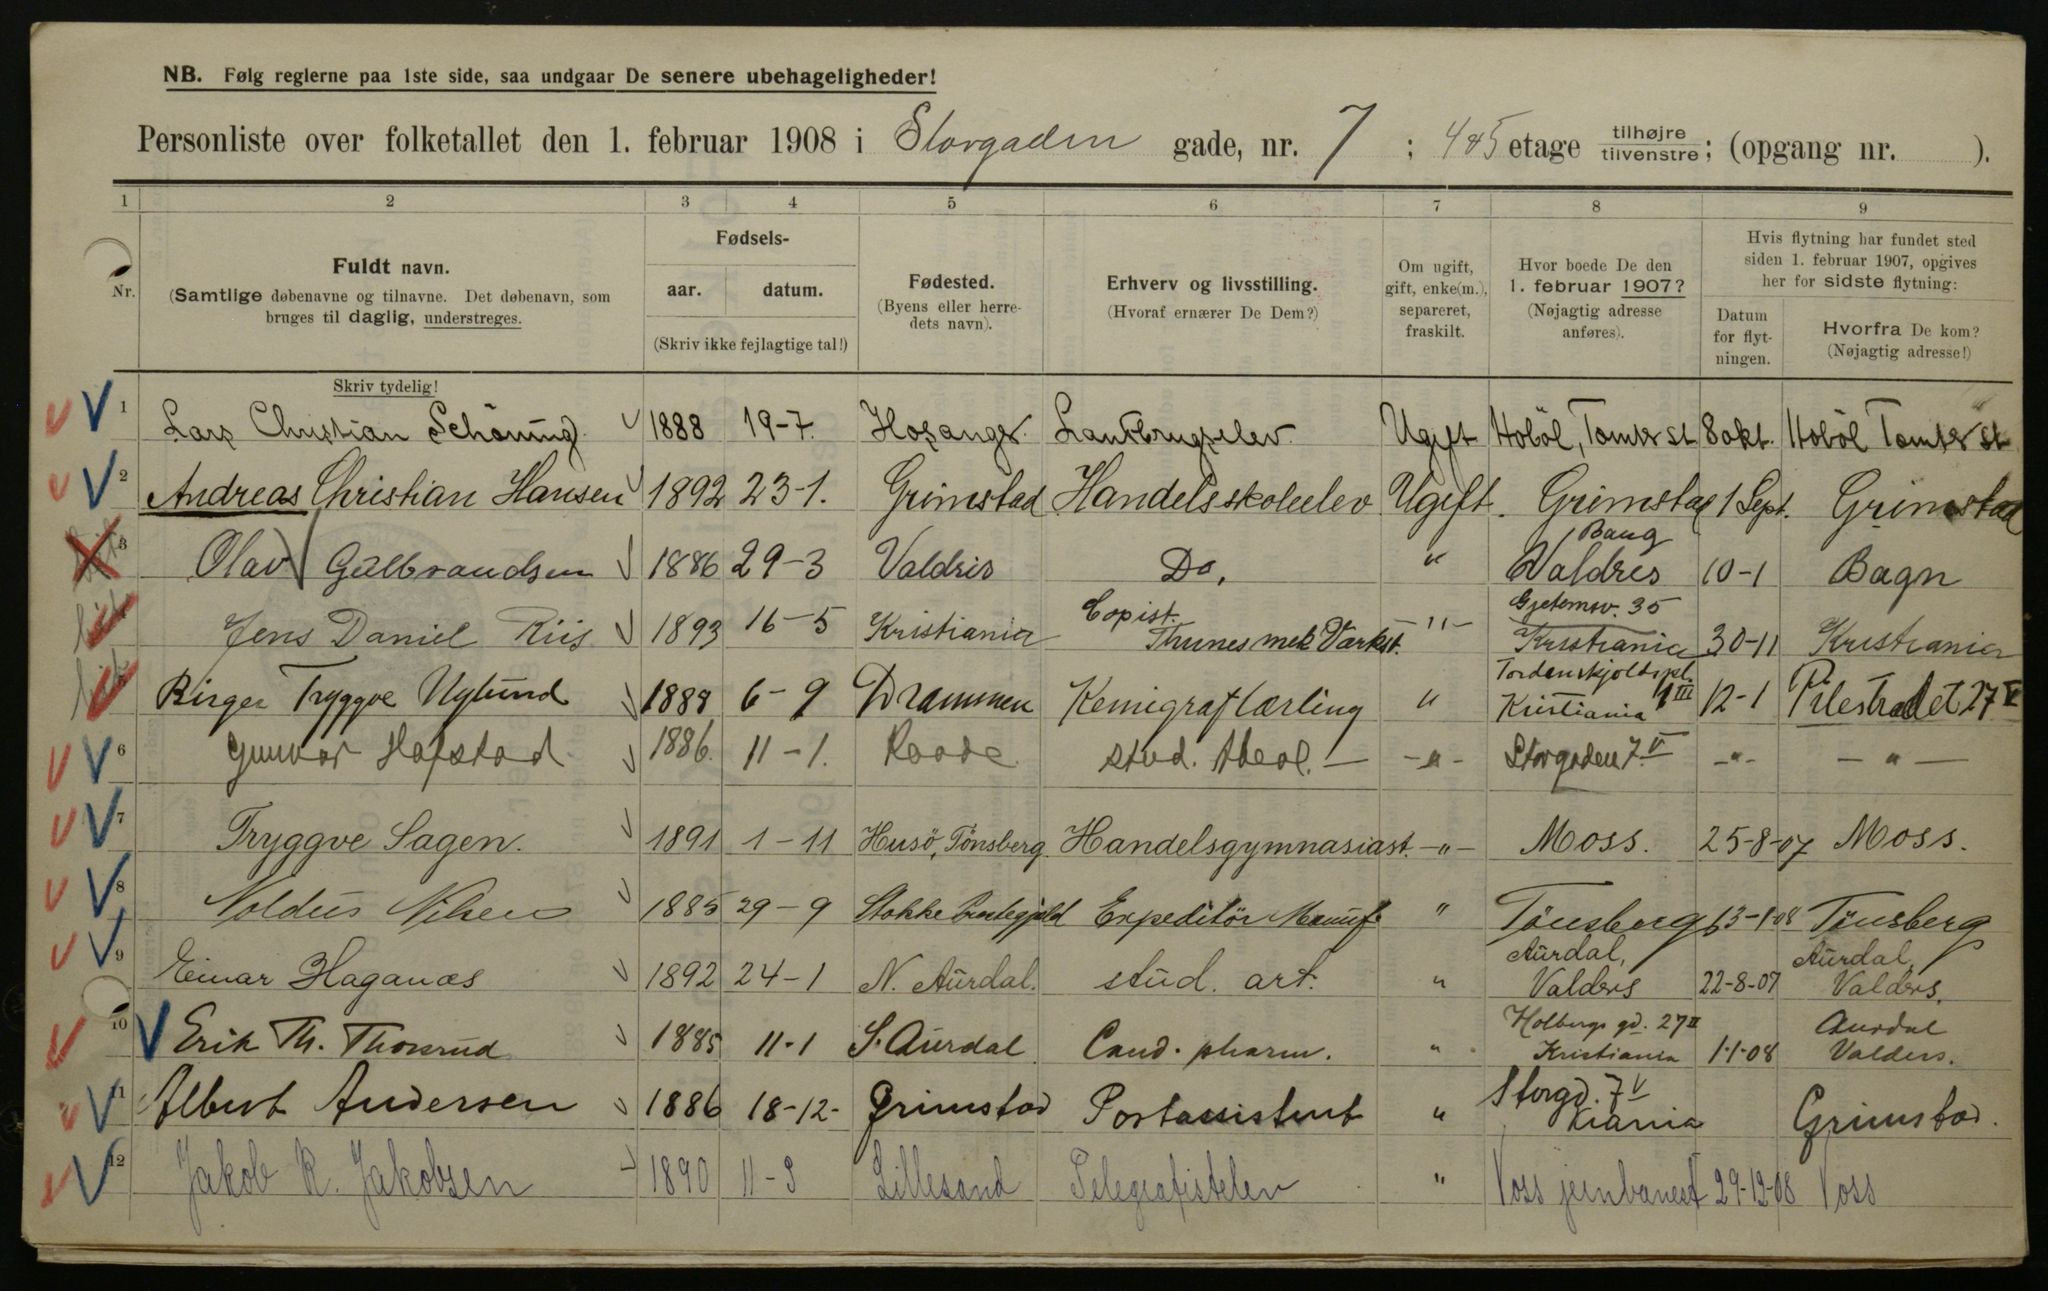 NB. Følg reglerne paa 1ste side, saa undgaar De senere ubehageligheder!
Personliste over folketallet den 1. februar 1908 i Storgaden gade, nr. 7 ; 4&5 etage tilhøjre tilvenstre; (opgang nr. ).
1 2 3 4 5 6 7 8 9
Nr.
Fuldt navn.
(Samtlige døbenavne og tilnavne. Det døbenavn, som
bruges til daglig, understreges.
Skriv tydelig!
Fødsels-
aar. datum.
(Skriv ikke fejlagtige tal!)
Fødested.
(Byens eller herre-
dets navn).
Erhverv og livsstilling.
(Hvoraf ernærer De Dem?)
Om ugift,
gift, enke(m.),
separeret,
fraskilt.
Hvor boede De den
1. februar 1907?
(Nøjagtig adresse
anføres).
Hvis flytning har fundet sted
siden 1. februar 1907, opgives
her for sidste flytning:
Datum
for flyt-
ningen.
Hvorfra De kom?
(Nøjagtig adresse!)
1 Lars Christian Schöning 1888 19-7. Hosanger Ugift Hobøl, Tomter st 8 okt. Hobøl Tomter st
2 Andreas Christian Hansen 1892 23-1. Grimstad Handelsskoleelev Ugift. Grimstad 1 Sept. Grimstad
3 Olav Gulbrandsen 1886 29-3 Valdris Do. " Bang Valdres 10-1 Bagn
Jens Daniel Riis 1893 16-5 Kristiania Copist. Thunes mek Værkst. -"- 35 Kristiania 30-11 Kristiania
Birger Tryggve Nylund 1888 6-9 Drammen Kemigraflærling " Tordenskjoldspl. 1 III Kristiania 12-1 Pilestrædet 27 V
6 Gunnar Hafstad 1886. 11-1. Raade stud. theol. — -"- Storgaden 7. V -"- — " —
7 Tryggve Sagen. 1891 1-11 Husö, Tönsberg Handelsgymnasiast. -"- Moss. 25-8-07 Moss.
8 Noldus Nilsen 1885 29-9 Stokke Prestegjeld Expeditör Manuf. " Tönsberg 13-1-08 Tönsberg
9 Einar Haganæs 1892 24-1 N. Aurdal. stud. art. " Aurdal, Valders 22-8-07 Aurdal, Valders.
10 Erik Th. Thorsrud 1885 11-1 S. Aurdal Cand. pharm. " Holbergs gd. 27 II Kristiania 1-1-08 Aurdal Valders.
11 Albert Andersen 1886 18-12- Grimstad Postassistent " Storgd. 7 V Kiania Grimstad.
12 Jakob R. Jakobsen 1890 Lillesand Telegrafistelev " Voss jernbanest 29-12-08 Voss